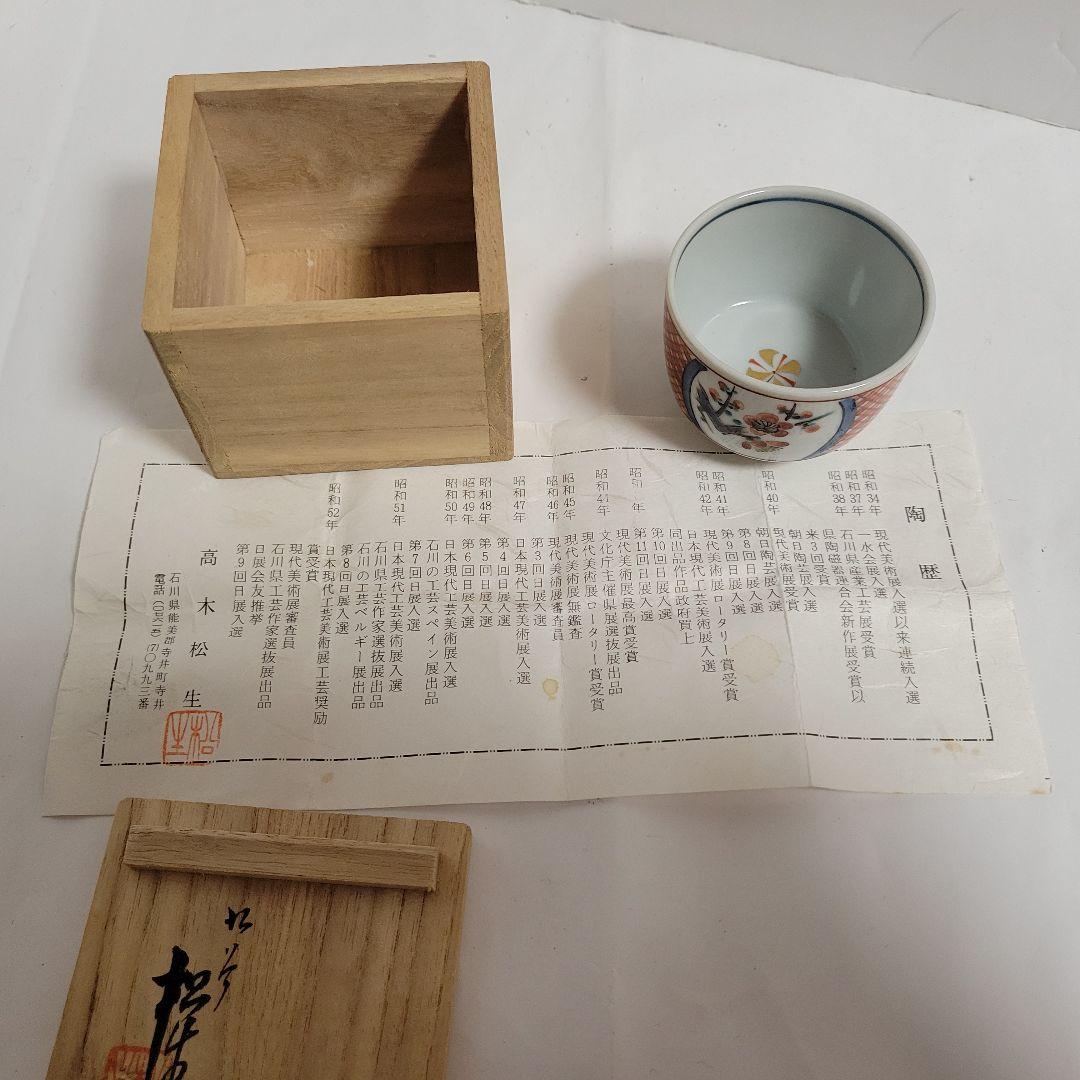 陶歴
昭和34年 現代美術展入選以来連続入選
昭和37年 一水会展入選
昭和38年 石川県産業工芸展受賞
県陶磁器連合会新作展受賞以
来3回受賞
朝日陶芸展入選
現代美術展受賞
昭和40年 朝日陶芸展入選
第8回日展入選
昭和41年 第9回日展入選
昭和42年 現代美術展ロータリー賞受賞
日本現代工芸美術展入選
同出品作品政府買上
第10回日展入選
第11回日展入選
現代美術展最高賞受賞
昭和44年 文化庁主催県展選抜展出品
現代美術展ロータリー賞受賞
昭和45年 現代美術展無鑑査
昭和46年 現代美術展審査員
第3回日展入選
昭和47年 日本現代工芸美術展入選
第4回日展入選
昭和48年 第5回日展入選
昭和49年 第6回日展入選
昭和50年 日本現代工芸美術展入選
石川の工芸スペイン展出品
第7回日展入選
昭和51年 日本現代工芸美術展入選
石川県工芸作家選抜展出品
石川の工芸ベルギー展出品
第8回日展入選
昭和52年 日本現代工芸美術展工芸奨励
賞受賞
現代美術展審査員
石川県工芸作家選抜展出品
日展会友推挙
第9回日展入選
高木松生
石川県能美郡寺井町寺井
松生
松生